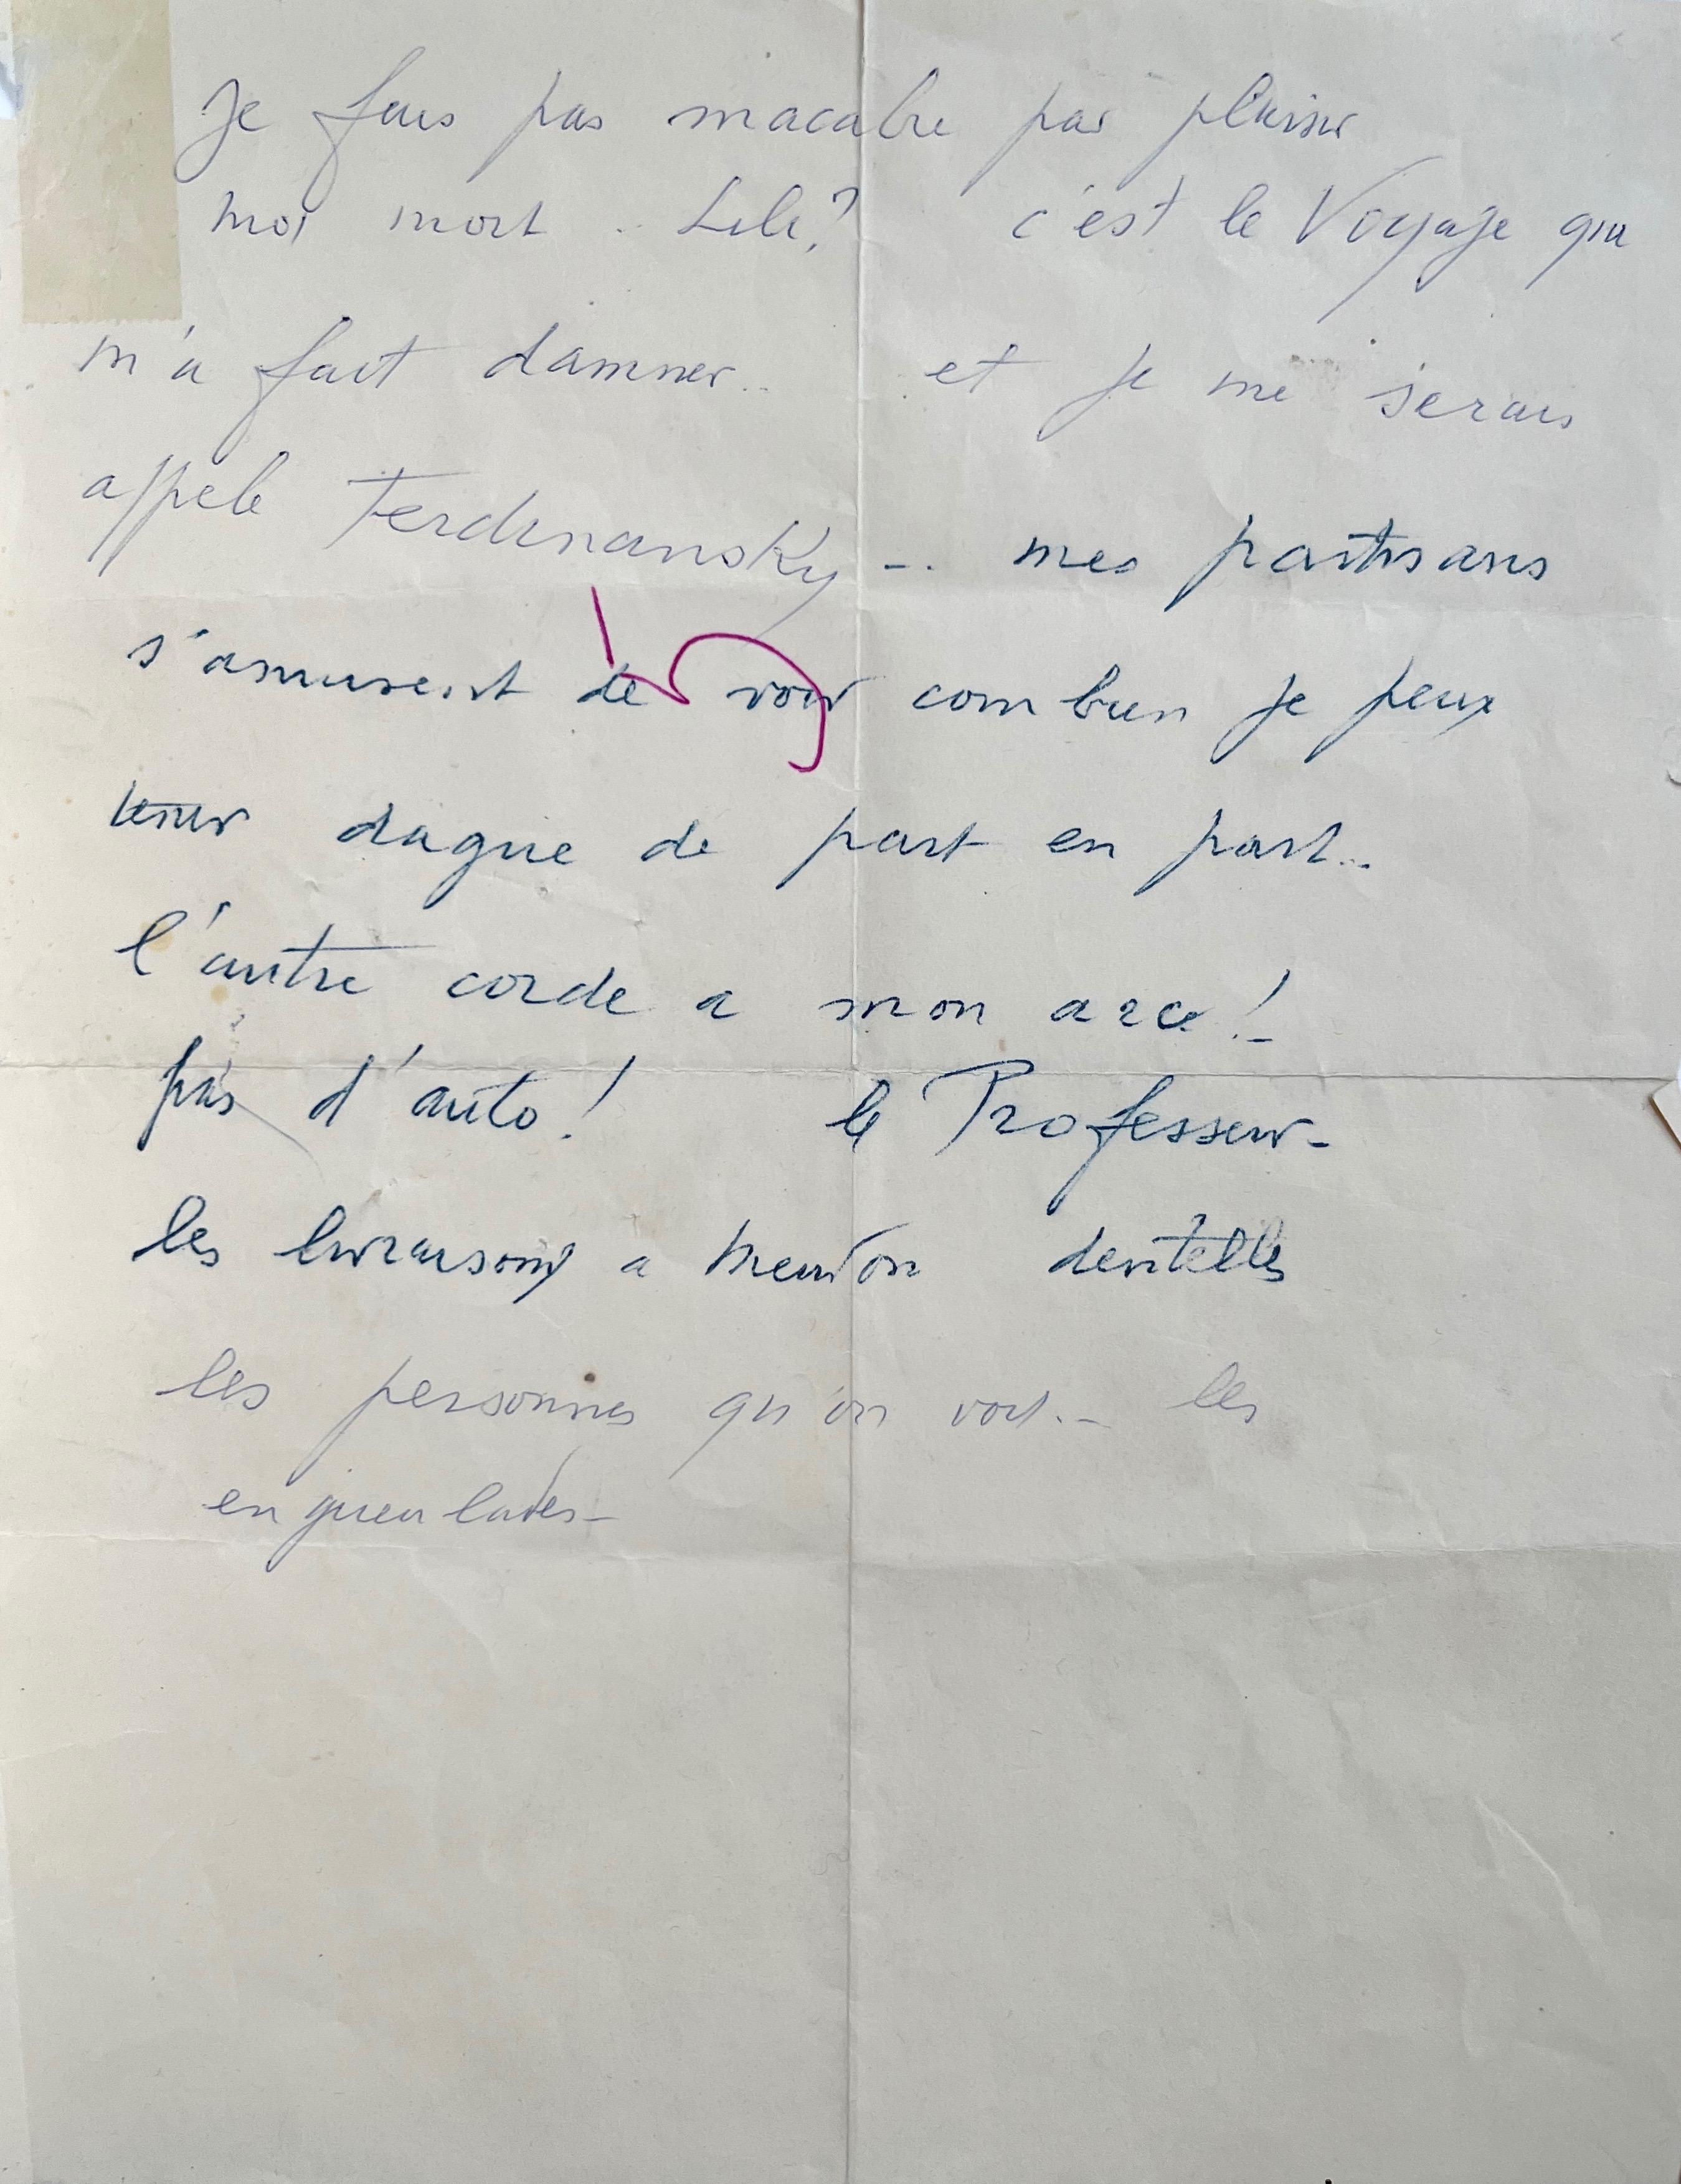 Je fais pas macabre par plaisir
moi mort .. Lili? c'est le Voyage qui
m'a fait damner.. et je me serais
appele Ferdinansky -. mes partisans
s'amusent de voir combien je peux
tenir dague de part en part..
l'autre corde a mon arc!-
pas d'auto! le Professeur-
les livraisons a Meudon dentelles
les personnes qu'on voit.- les
engueulades-